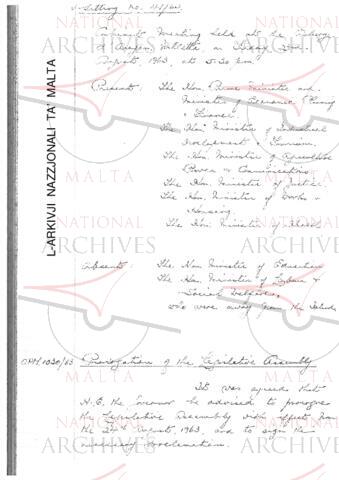 Sitting No. 41/63
Meeting held at the
on
August, 1963, at 5.30 p.m.
Present: The Hon. Prime Minister and
Minister of Economic Planning
& Finance.
The Hon. Minister of Industrial
Development & Tourism.
The Hon. Minister of Agriculture
Power & Communications.
The Hon. Minister of Justice.
The Hon. Minister of Works &
Housing.
The Hon. Minister of Health
Absent: The Hon. Minister of Education
The Hon. Minister of Labour &
Social Welfare,
who were away from the Island
OPM 1030/63 Prorogation of the Legislative Assembly
It was agreed that
H.E. the Governor be advised to prorogue
the Legislative Assembly with effect from
the 24th August, 1963, and to sign the
necessary proclamation.
L-ARKIVJI NAZZJONALI TA' MALTA
NATIONAL
ARCHIVES
MALTA